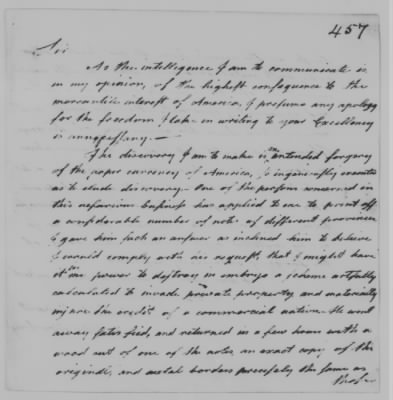 457
Sir
As the intelligence I am to communicate is
in my opinion, of the highest consequence to the
mercantile interest of America, I presume any apology
for the freedom I take in writing to your Excellency
is unnecessary.—
The discovery I am to make is the intended forgery
of the paper currency of America, so ingeniously executed
as to elude discovery— One of the persons concerned in
this nefarious business has applied to me to print off
a considerable number of notes of different provinces
I gave him such an answer as inclined him to believe
I would comply with his request, that I might have
it in my power to destroy in embryo a scheme artfully
calculated to invade private property, and materially
injure the credit of a commercial nation. He went
away satisfied, and returned in a few hours with a
wood cut of one of the notes, an exact copy of the
original, and metal borders precisely the same as
those